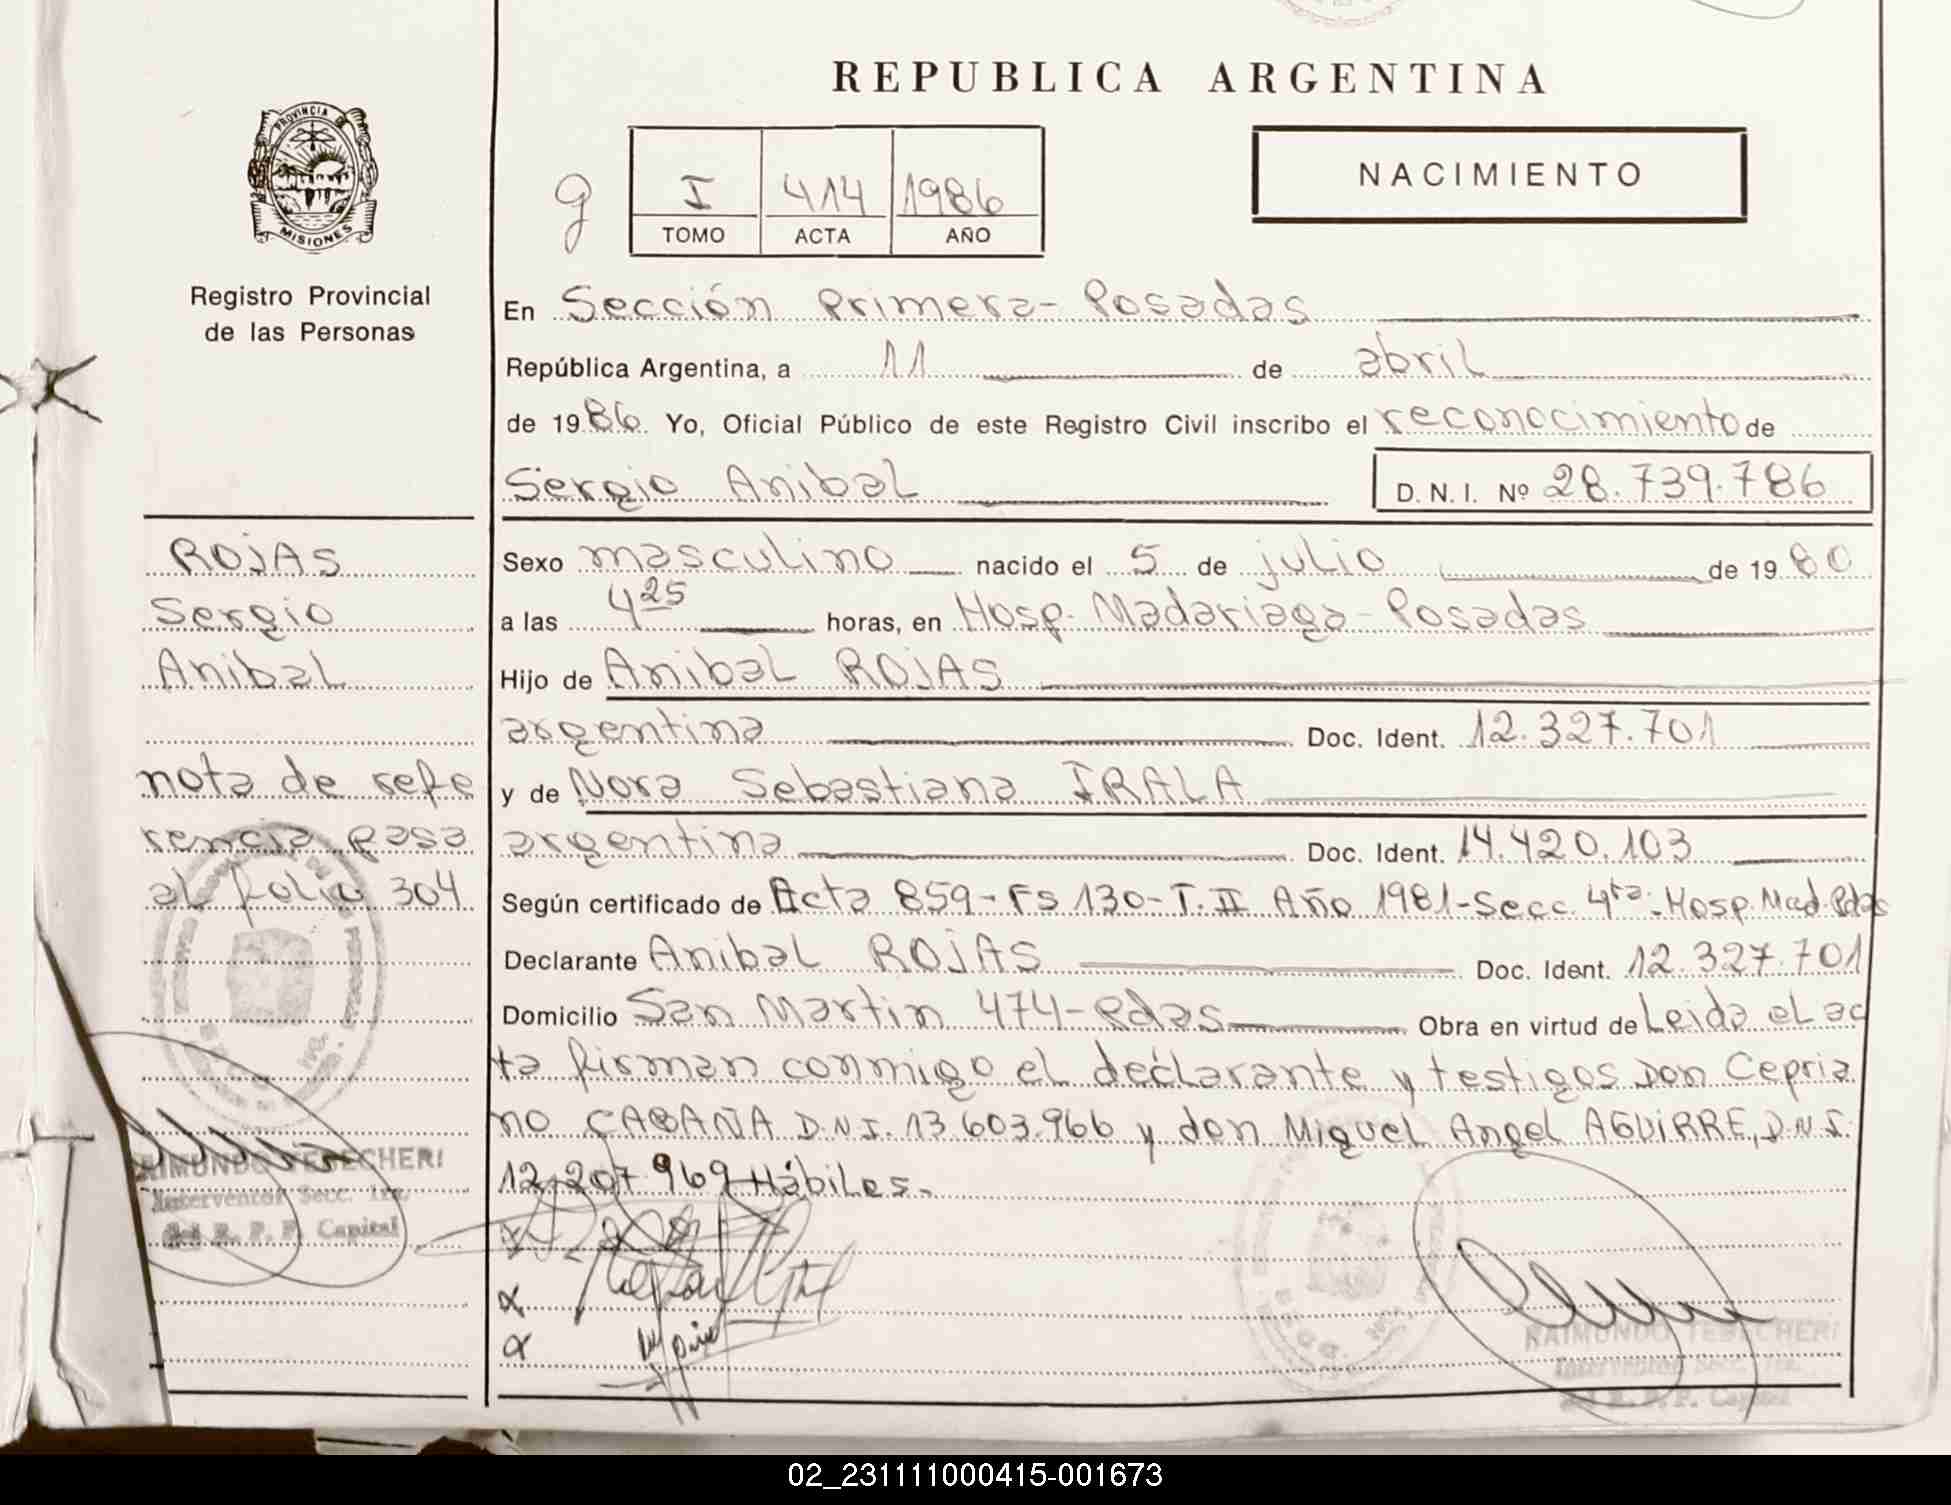 REPUBLICA ARGENTINA
PROVINCIA DE
MISIONES
Registro Provincial
de las Personas
g
I 414 1986
TOMO ACTA AÑO
NACIMIENTO
En Sección Primera - Posadas
República Argentina, a 11 de abril
de 1986. Yo, Oficial Público de este Registro Civil inscribo el reconocimiento de
Sergio Anibal D. N. I. Nº 28.739.786
ROJAS
Sergio
Anibal
nota de refe
rencia pasa
al folio 304
Sexo masculino nacido el 5 de julio de 1980
a las 4 25 horas, en Hosp. Madariaga - Posadas
Hijo de Anibal ROJAS
argentina Doc. Ident. 12.327.701
y de Nora Sebastiana IRALA
argentina Doc. Ident. 14.420.103
Según certificado de Acta 859 - Fs 130 - T. II Año 1981 - Secc. 4ta - Hosp. Mad. Pdas
Declarante Anibal ROJAS Doc. Ident. 12.327.701
Domicilio San Martin 474 - Pdas Obra en virtud de Leida el ac
ta firman conmigo el declarante y testigos Don Cepria
no CABAÑA D.N.I. 13.603.966 y don Miguel Angel AGUIRRE, D.N.I.
12.207.969 Hábiles.-
RAIMUNDO TEBECHERI
Interventor Secc. 1ra.
del R. P. P. Capital
RAIMUNDO TEBECHERI
Interventor Secc. 1ra.
del R. P. P. Capital
02_231111000415-001673